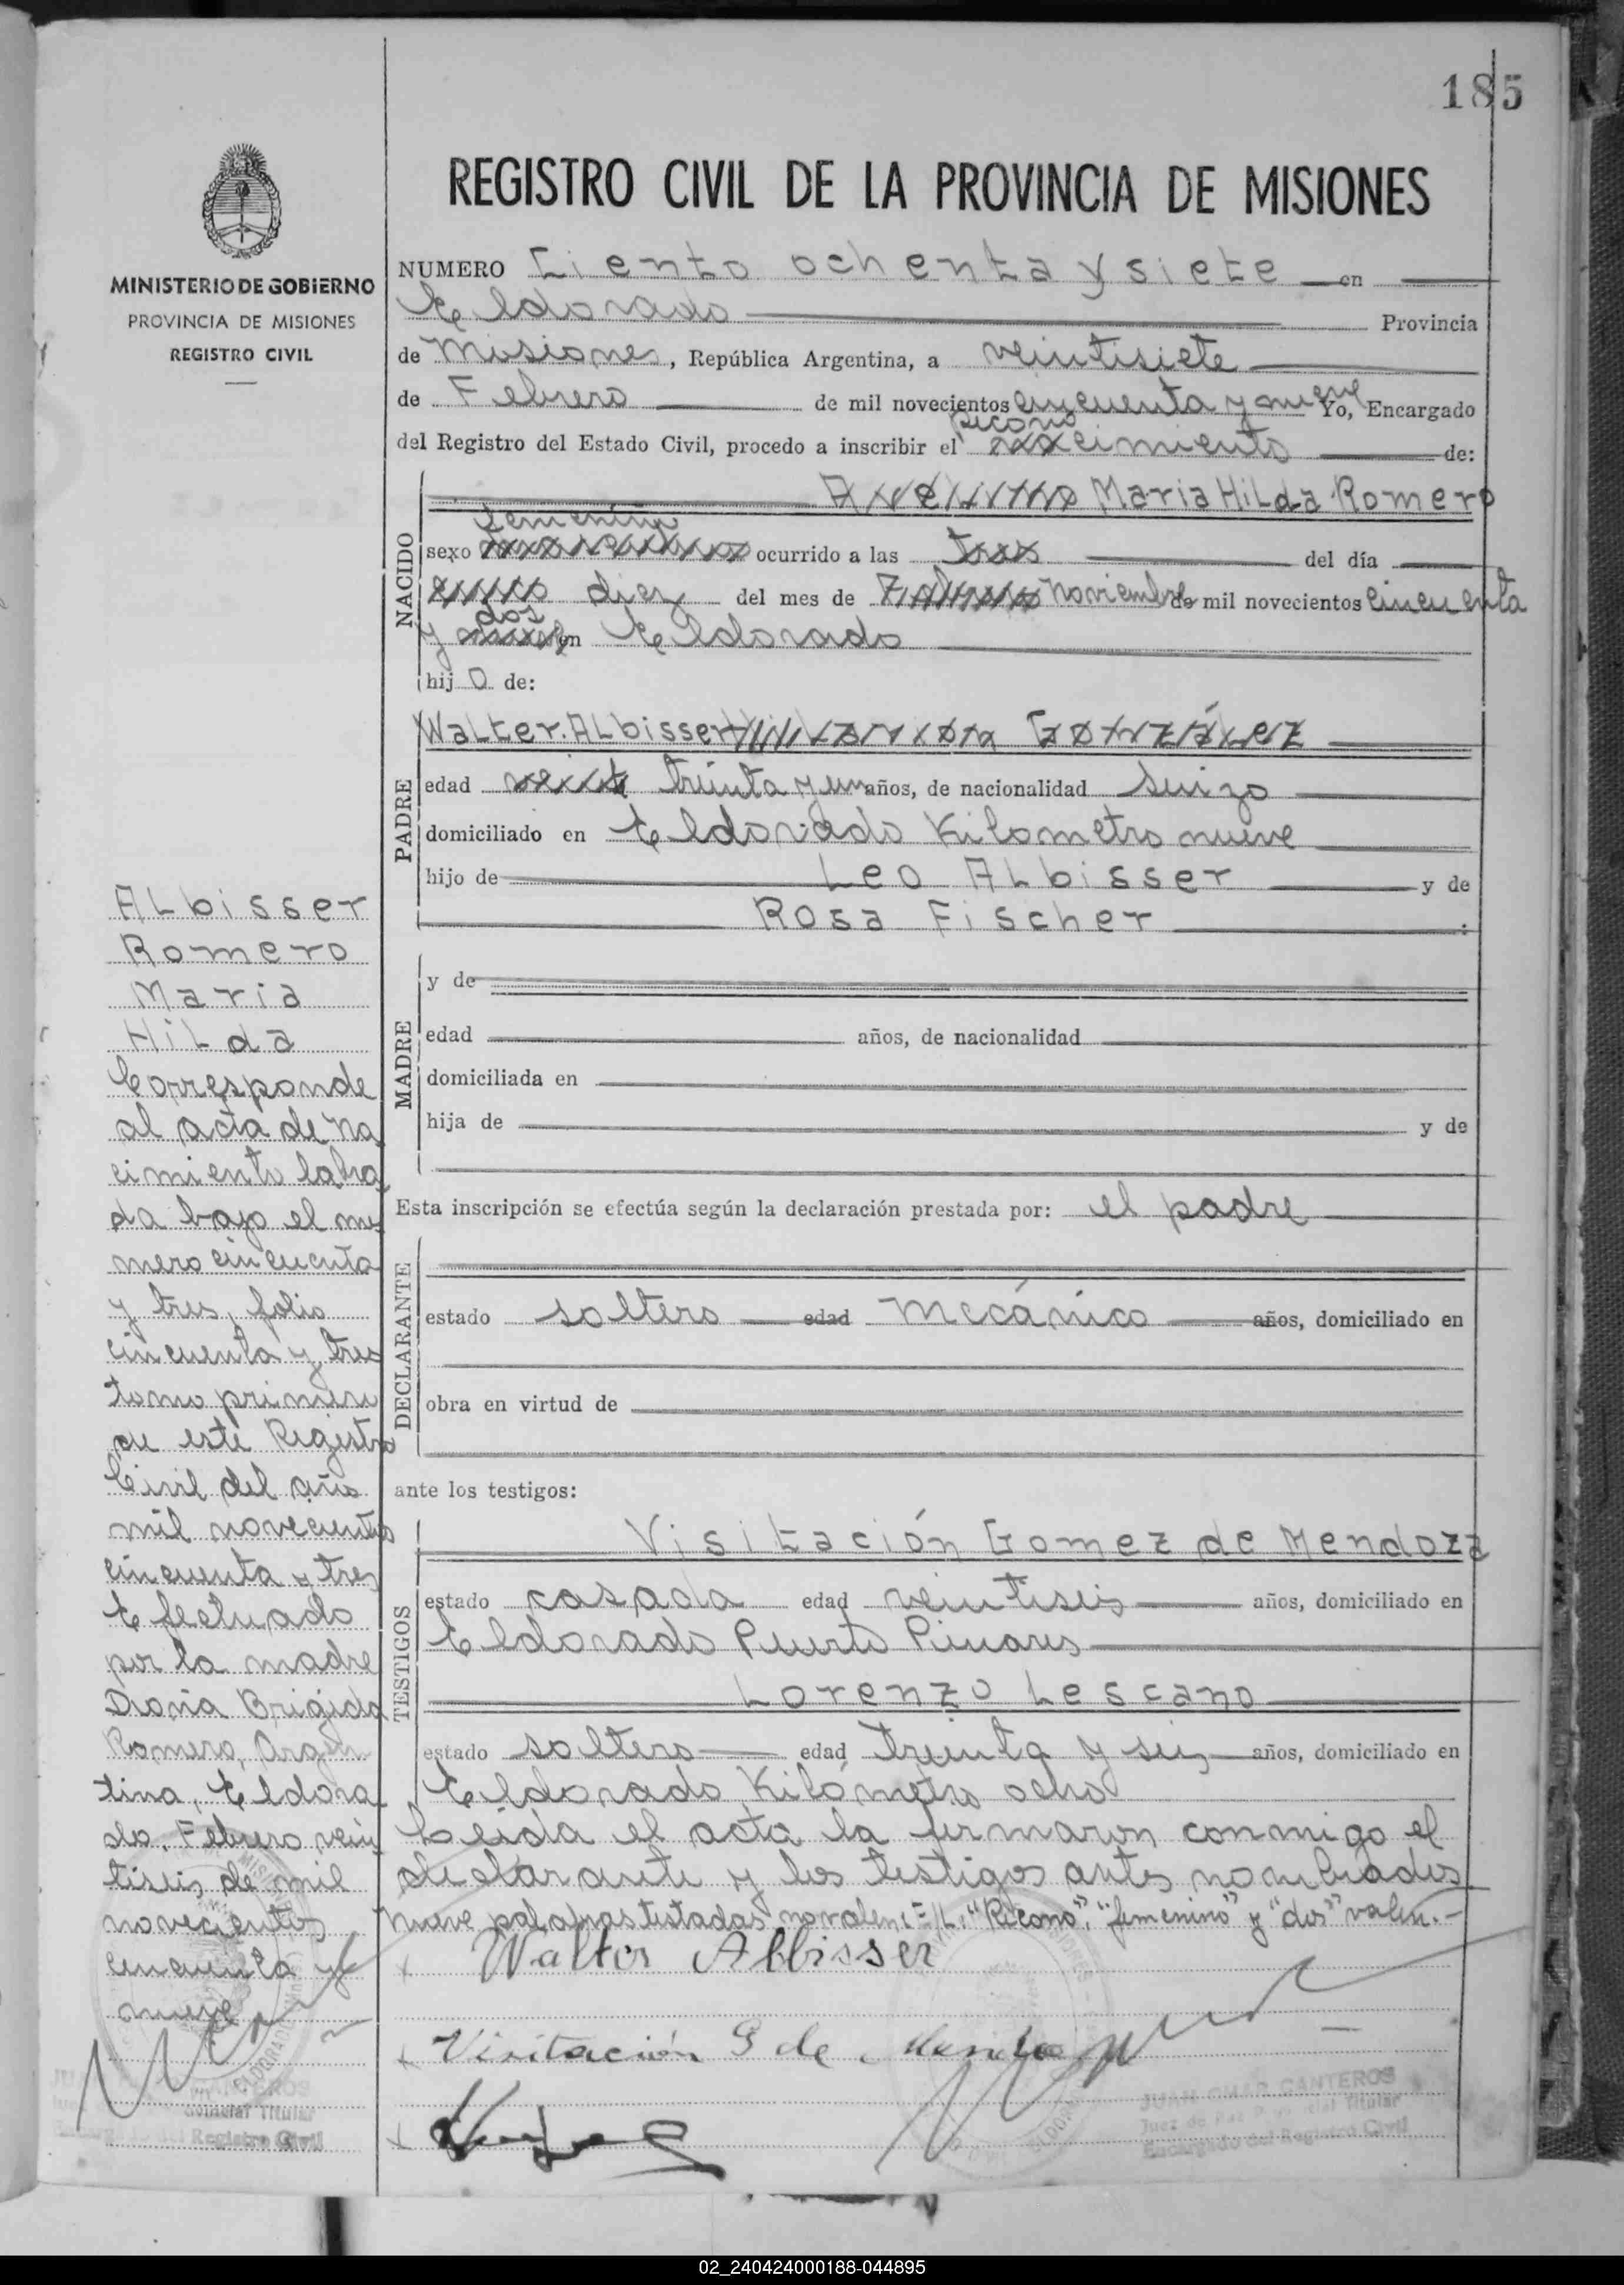 185
REGISTRO CIVIL DE LA PROVINCIA DE MISIONES
MINISTERIO DE GOBIERNO
PROVINCIA DE MISIONES
REGISTRO CIVIL
NUMERO Ciento ochenta y siete en
Eldorado Provincia
de Misiones, República Argentina, a veintisiete
de Febrero de mil novecientos cincuenta y nueve Yo, Encargado
recono
del Registro del Estado Civil, procedo a inscribir el cimiento de:
NACIDO
Maria Hilda Romero
femenino
sexo ocurrido a las del día
diez del mes de noviembre de mil novecientos cincuenta
dos
y en Eldorado
hijo de:
PADRE
Walter Albisser
edad treinta y un años, de nacionalidad suizo
domiciliado en Eldorado Kilometro nueve
hijo de Leo Albisser y de
Rosa Fischer
MADRE
y de
edad años, de nacionalidad
domiciliada en
hija de y de
Esta inscripción se efectúa según la declaración prestada por: el padre
DECLARANTE
estado soltero edad mecánico años, domiciliado en
obra en virtud de
ante los testigos:
TESTIGOS
Visitación Gomez de Mendoza
estado casada edad veintiseis años, domiciliado en
Eldorado Puerto Pinares
Lorenzo Lescano
estado soltero edad treinta y seis años, domiciliado en
Eldorado Kilómetro ocho
Leída el acta la firmaron conmigo el
declarante y los testigos antes nombrados
nueve palabras testadas no valen: "Recono", "femenino" y "dos" valen.-
Walter Albisser
Visitación G de
JUAN OMAR CANTEROS
Juez de Paz Titular
Encargado del Registro Civil
Albisser
Romero
Maria
Hilda
Corresponde
al acta de na
cimiento labra
da bajo el nu
mero cincuenta
y tres, folio
cincuenta y tres
tomo primero
de este Registro
Civil del año
mil novecientos
cincuenta y tres
Efectuado
por la madre
Doña Brigida
Romero, Argen
tina, Eldora
do, Febrero vein
tiseis de mil
novecientos
cincuenta y
nueve
Titular
Registro Civil
02_240424000188-044895